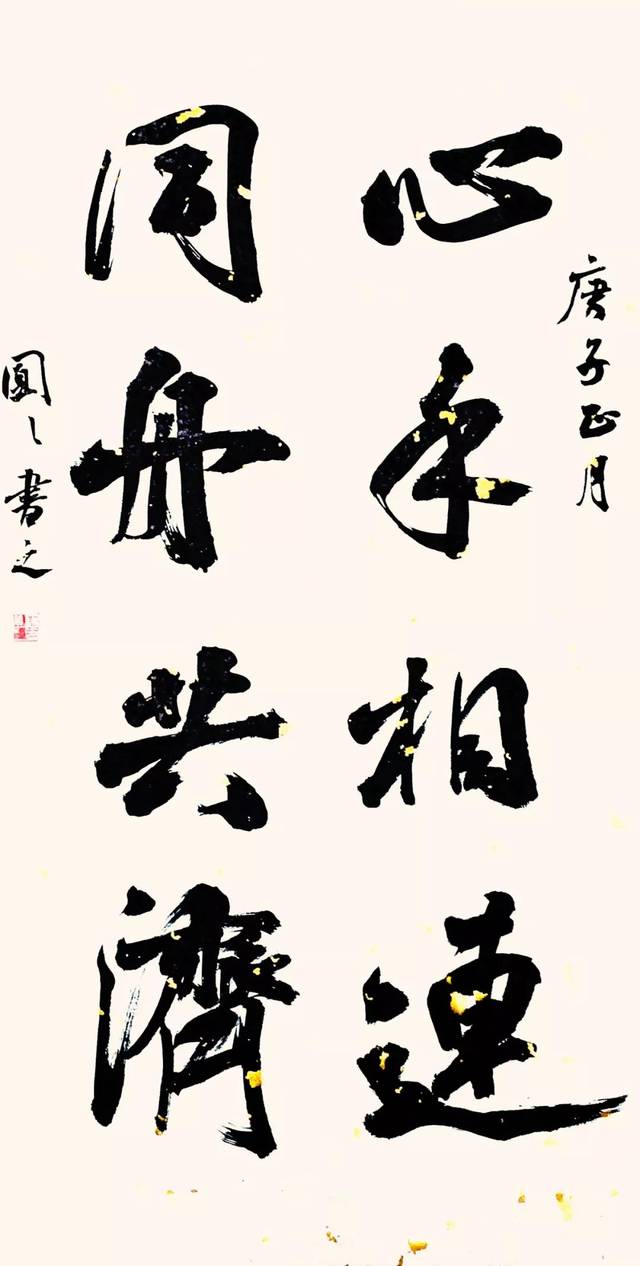 庚子正月
心手相連
同舟共濟
圓〻書之